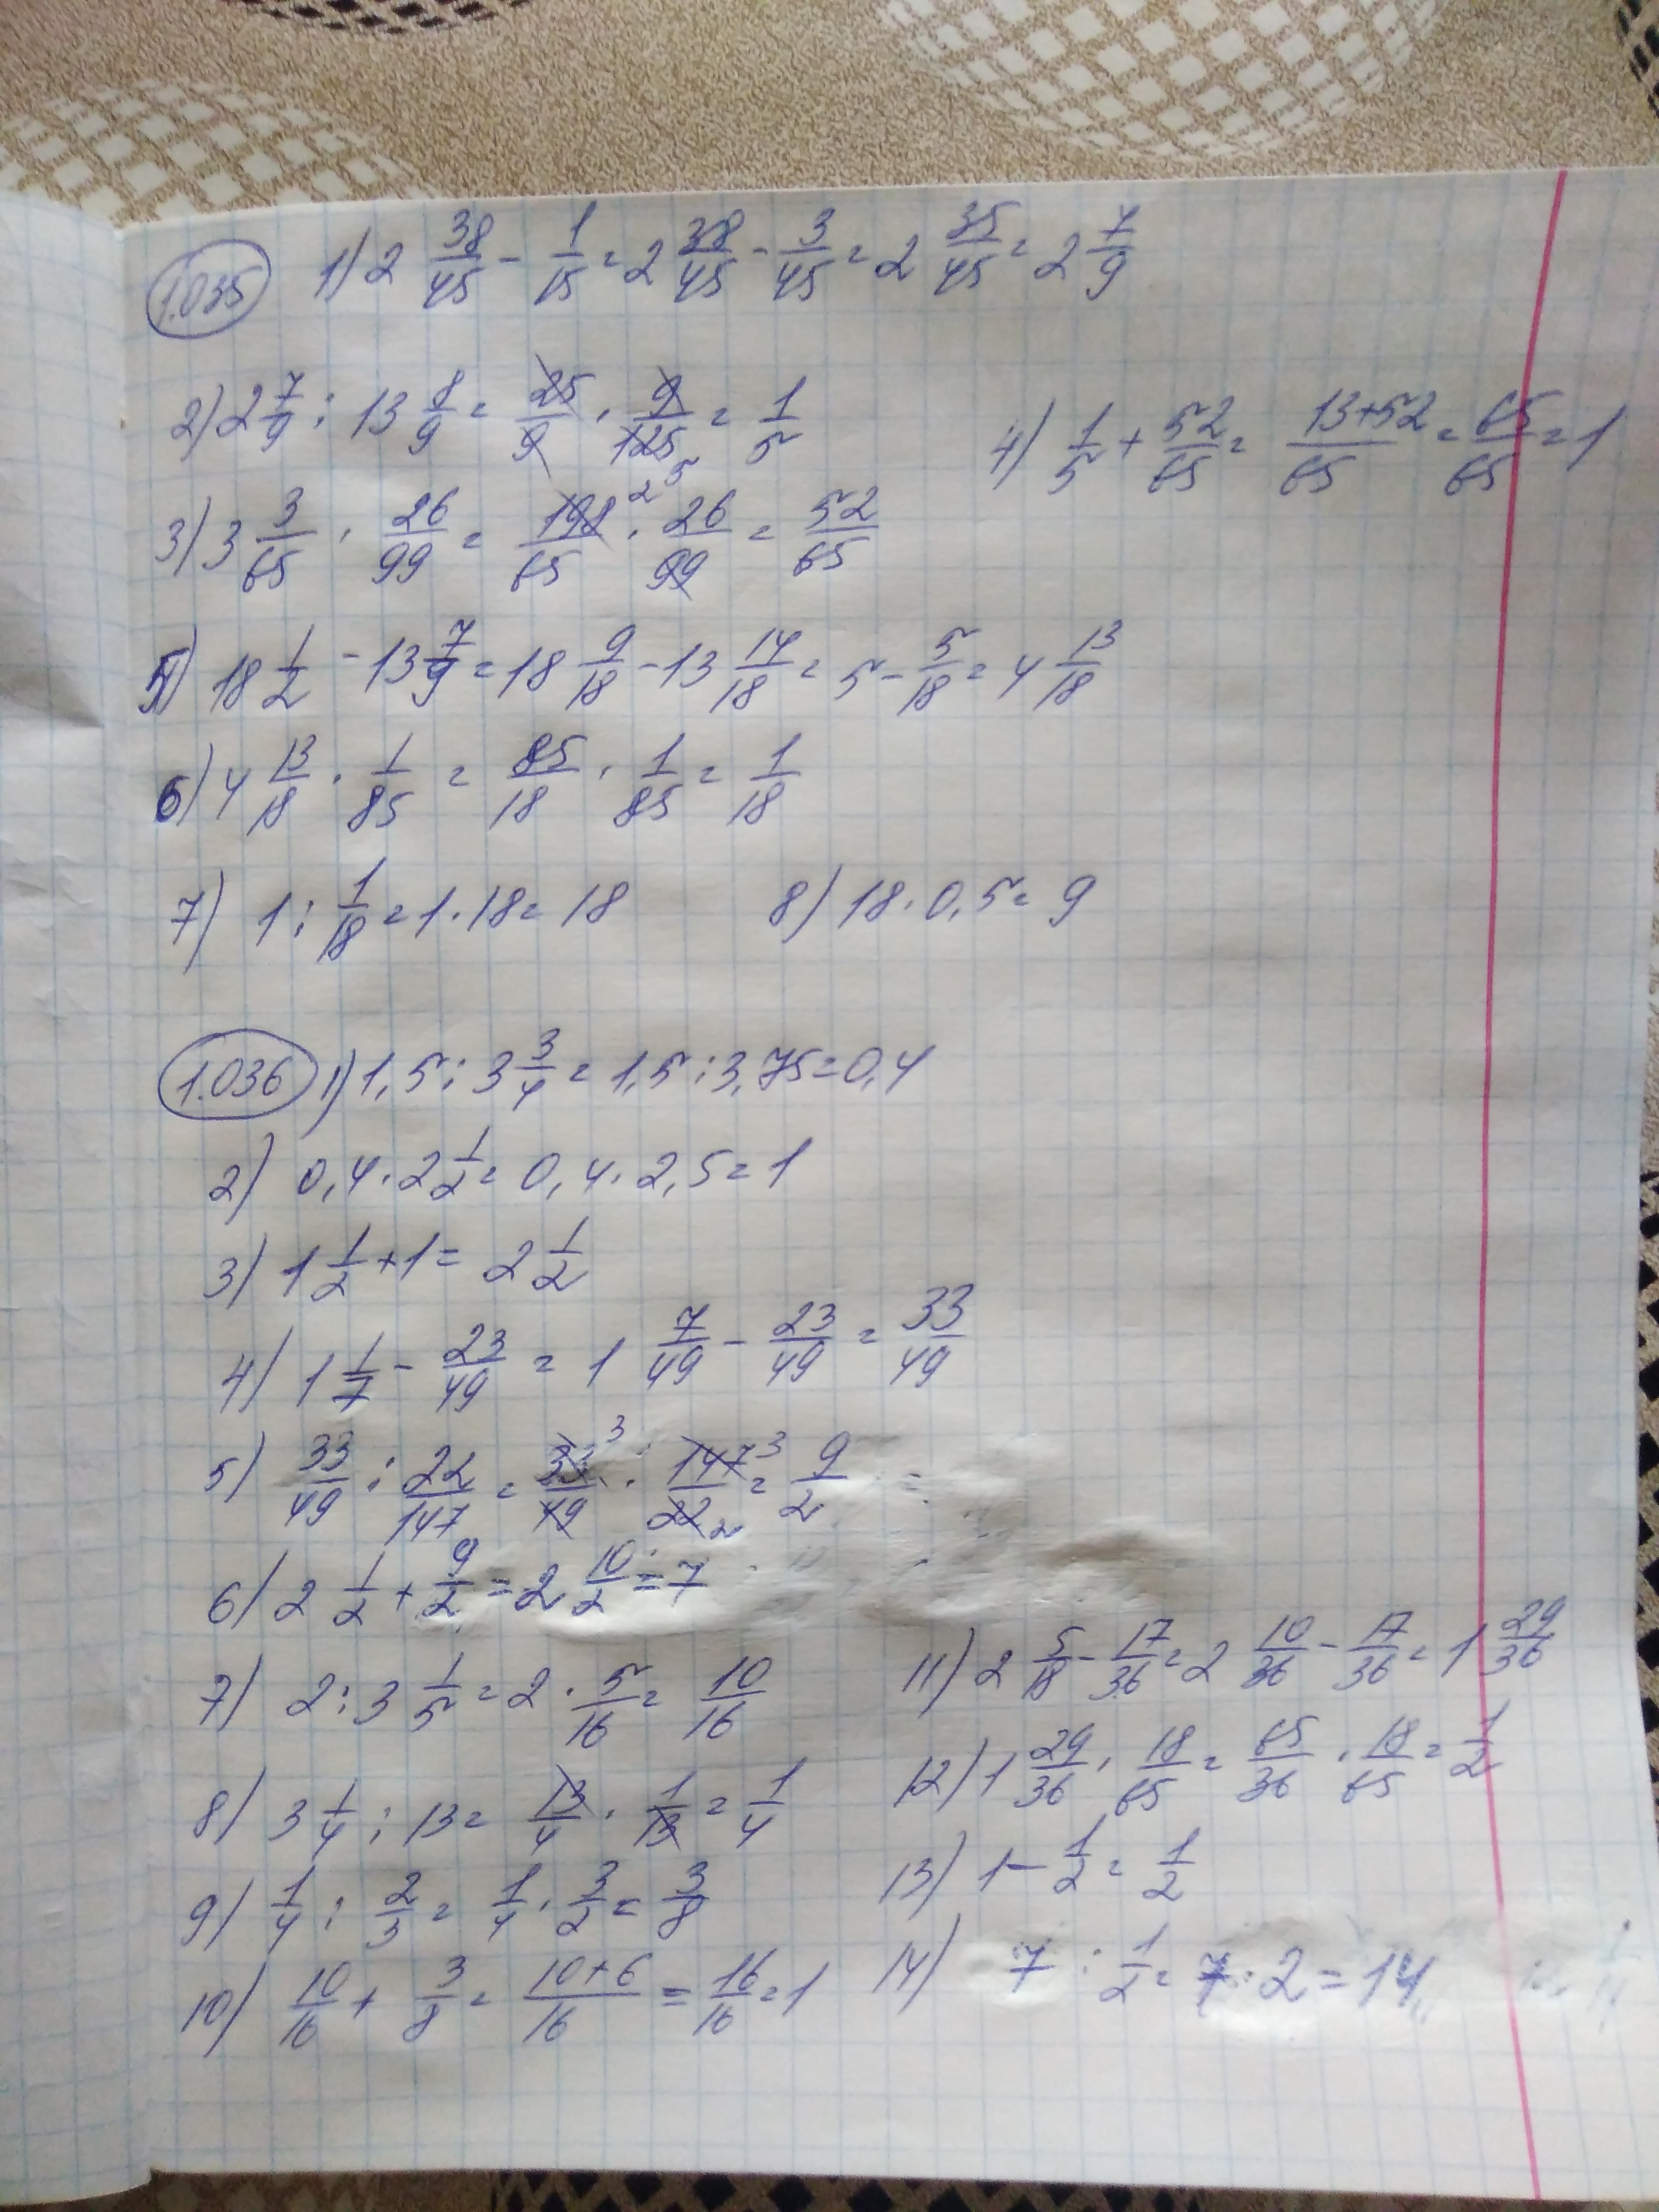 1.035 1) 2 38/45 - 1/15 = 2 38/45 - 3/45 = 2 35/45 = 2 7/9
2) 2 7/9 : 13 8/9 = 25/9 · 9/125 5 = 1/5
4) 1/5 + 52/65 = 13+52/65 = 65/65 = 1
3) 3 3/65 · 26/99 = 198 2/65 · 26/99 = 52/65
5) 18 1/2 - 13 7/9 = 18 9/18 - 13 14/18 = 5 - 5/18 = 4 13/18
6) 4 13/18 · 1/85 = 85/18 · 1/85 = 1/18
7) 1 : 1/18 = 1 · 18 = 18
8) 18 · 0,5 = 9
1.036 1) 1,5 : 3 3/4 = 1,5 : 3,75 = 0,4
2) 0,4 · 2 1/2 = 0,4 · 2,5 = 1
3) 1 1/2 + 1 = 2 1/2
4) 1 1/7 - 23/49 = 1 7/49 - 23/49 = 33/49
5) 33/49 : 22/147 = 33 3/49 · 147 3/22 2 = 9/2
6) 2 1/2 + 9/2 = 2 10/2 = 7
7) 2 : 3 1/5 = 2 · 5/16 = 10/16
11) 2 5/18 - 17/36 = 2 10/36 - 17/36 = 1 29/36
8) 3 1/4 : 13 = 13/4 · 1/13 = 1/4
12) 1 29/36 · 18/65 = 65/36 · 18/65 = 1/2
9) 1/4 : 2/3 = 1/4 · 3/2 = 3/8
13) 1 - 1/2 = 1/2
10) 10/16 + 3/8 = 10+6/16 = 16/16 = 1
14) 7 : 1/2 = 7 · 2 = 14